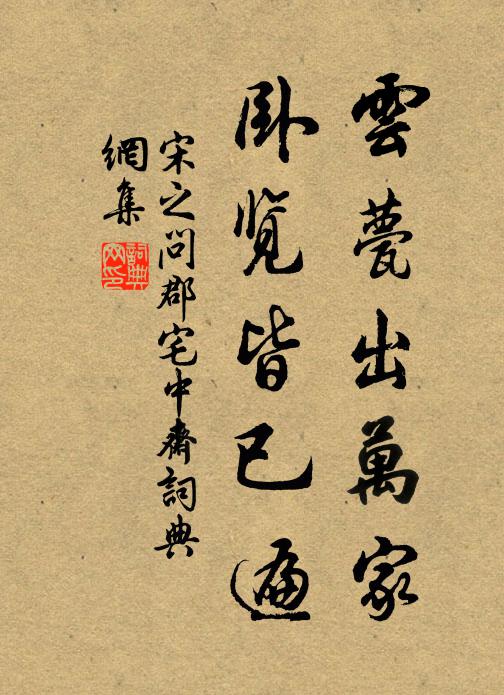 雲甍出萬家
卧览皆已遍
宋之问郡宅中齋詞典
網集
詞典
网印